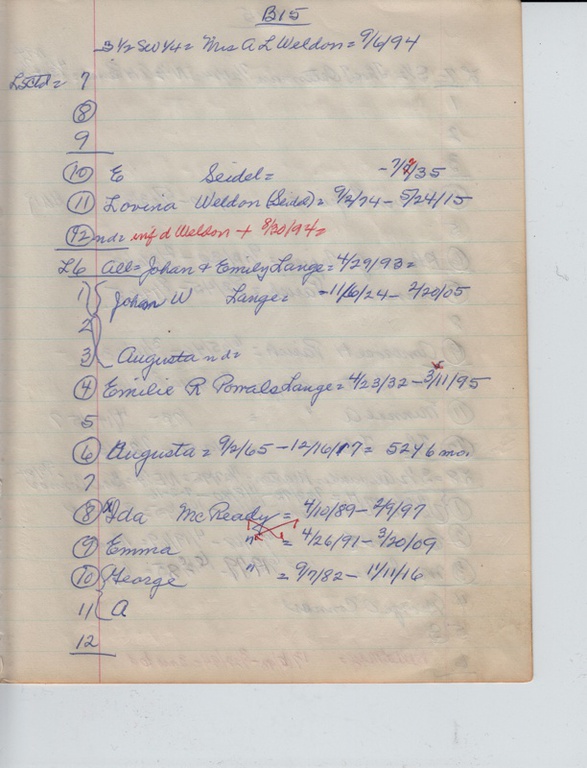 B15
S 1/2 SW 1/4 = Mrs A L Weldon = 9/6/94
7
8
9
10 E Seidel = -7/ /35
11 Lovina Weldon (Seidel) = 9/2/74 - 5/24/15
12 nd = inf d Weldon + 8/30/94 =
L6 all = Johan & Emily Lange = 4/29/93 =
1 Johan W Lange = -11/6/24 - 2/20/05
2
3 Augusta nd =
4 Emilie R Lange = 4/23/32 - 3/11/95
5
6 Augusta = 9/2/65 - 12/16/17 = 52 Y 6 mo.
7
8 Ida McReady = 4/10/89 - 2/9/97
9 Emma " = 4/26/91 - 3/20/09
10 George " = 9/7/82 - 11/11/16
11 A
12